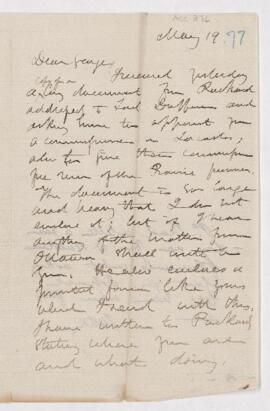 ACC 276
May 19. 77
Dear George
I received yesterday
copy of a
a long document from Packard
addressed to Lord Dufferin and
asking him to appoint you
a commissioner in
also to give these commissions
The document is so large
and heavy that I do not
enclose it; but if I hear
anything of the matter from
Ottawa I shall write to
you. He also encloses a
printed form like yours
which I send with this.
I have written to Packard
stating where you are
and what doing.